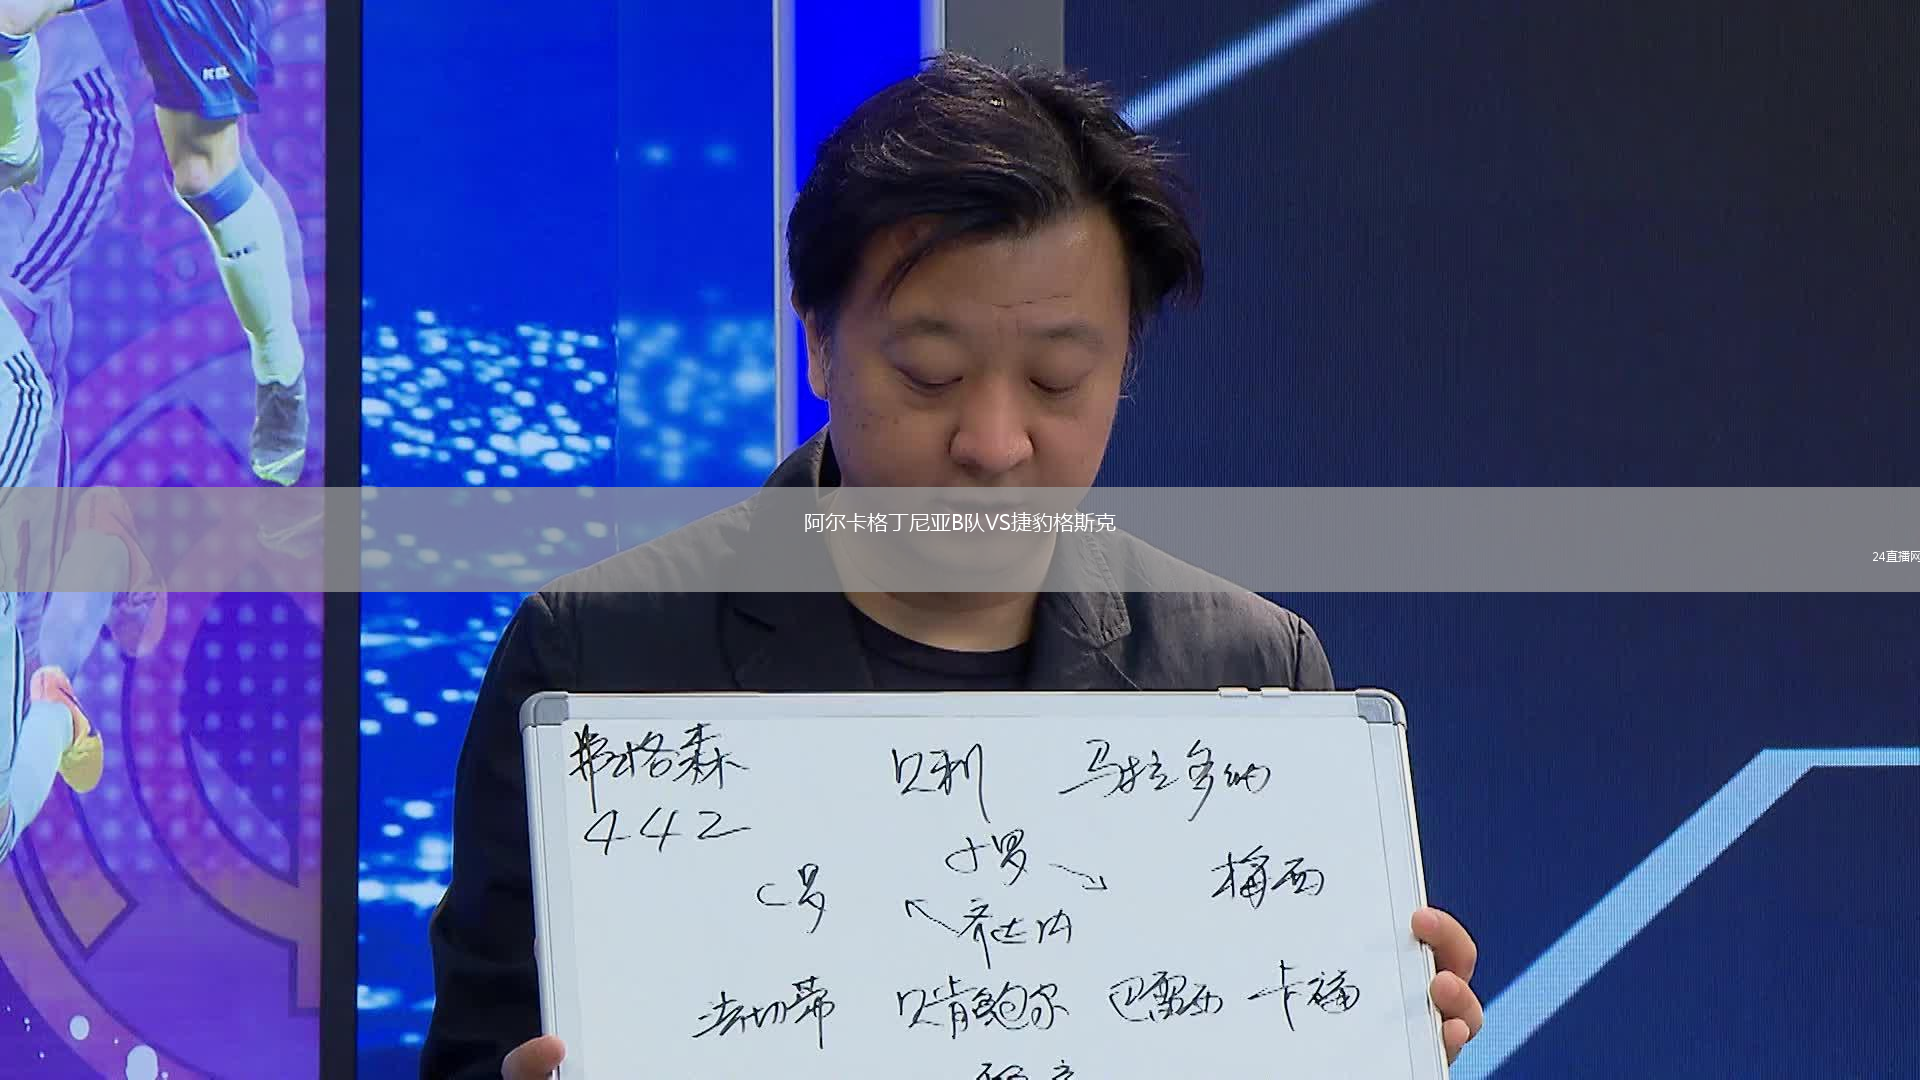 阿尔卡格丁尼亚B队VS捷豹格斯克
24直播网
弗格森 贝利 马拉多纳
442
小罗
C罗 梅西
齐达内
法切蒂 贝肯鲍尔 巴雷西 卡福